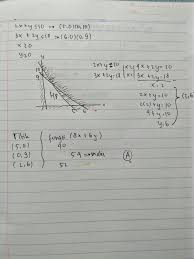 2x+y≤10 → (5,0)(0,10)
3x+2y≤18 → (6,0)(0,9)
x≥0
y≥0
y
HP
x
2x+y=10 |x2| 4x+2y=20
3x+2y=18 |x1| 3x+2y=18
x=2
2x+y=10
2(2)+y=10
4+y=10
y=6
Titik fungsi (8x+6y)
(5,0) 40
(0,9) 54
(2,6) 52
A